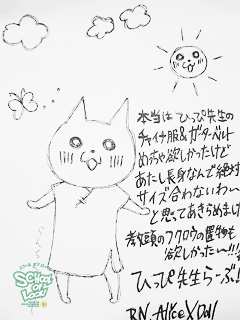 本当はひっぴ先生の
チャイナ服&ガーターベルト
めっちゃ欲しかったけど
あたし長身なんで絶対
サイズ合わないわい
と思ってあきらめました
教頭のフクロウの置物も
欲しかったい!!!
ひっぴ先生らーぶ!!
RN.AliceXDoll
SCHOOL
OF
LOCK!